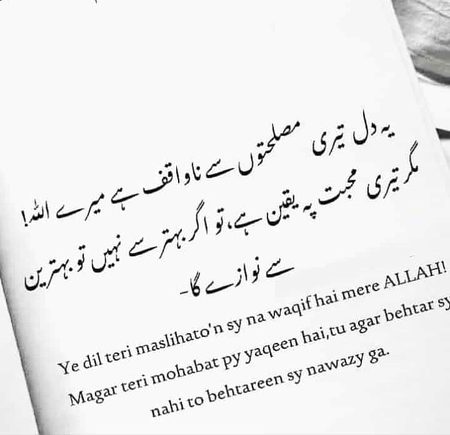 یہ دل تیری مصلحتوں سے ناواقف ہے میرے اللہ!
مگر تیری محبت پہ یقین ہے، تو اگر بہتر سے نہیں تو بہترین
سے نوازے گا-
Ye dil teri maslihato'n sy na waqif hai mere ALLAH!
Magar teri mohabat py yaqeen hai,tu agar behtar sy
nahi to behtareen sy nawazy ga.